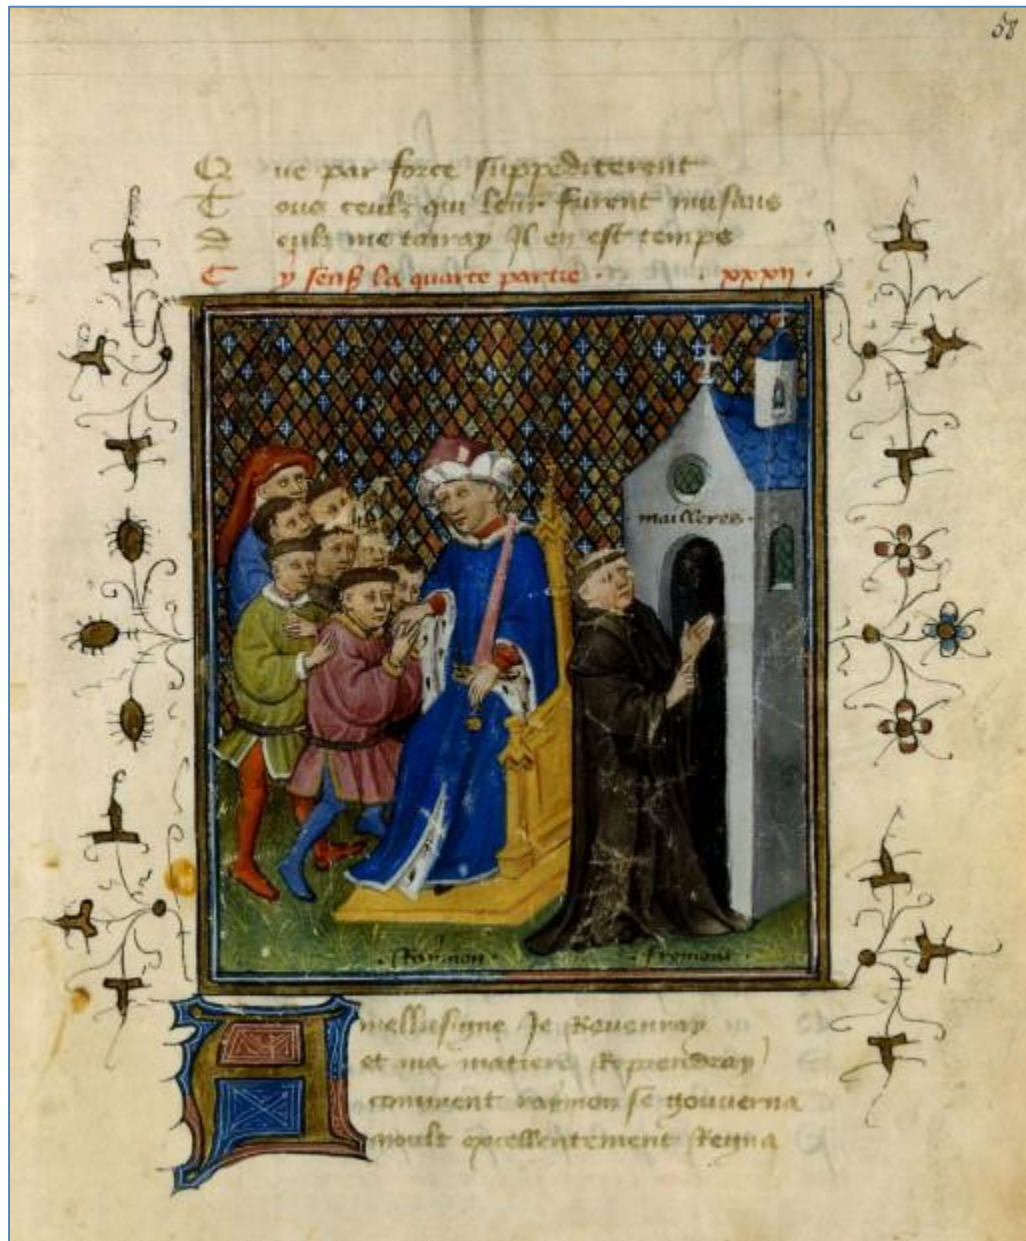 58
Que par force suppediterent
Tous ceulz qui leur furent nuisans
Deulz me tairay Il en est temps
Cy fenist la quarte partie . xxxii .
. mailleres .
. Raimon . . fromont .
A mellusigne Je Revenray
et ma matiere Reprendray
comment raimon se gouverna
moult excellentement Regna